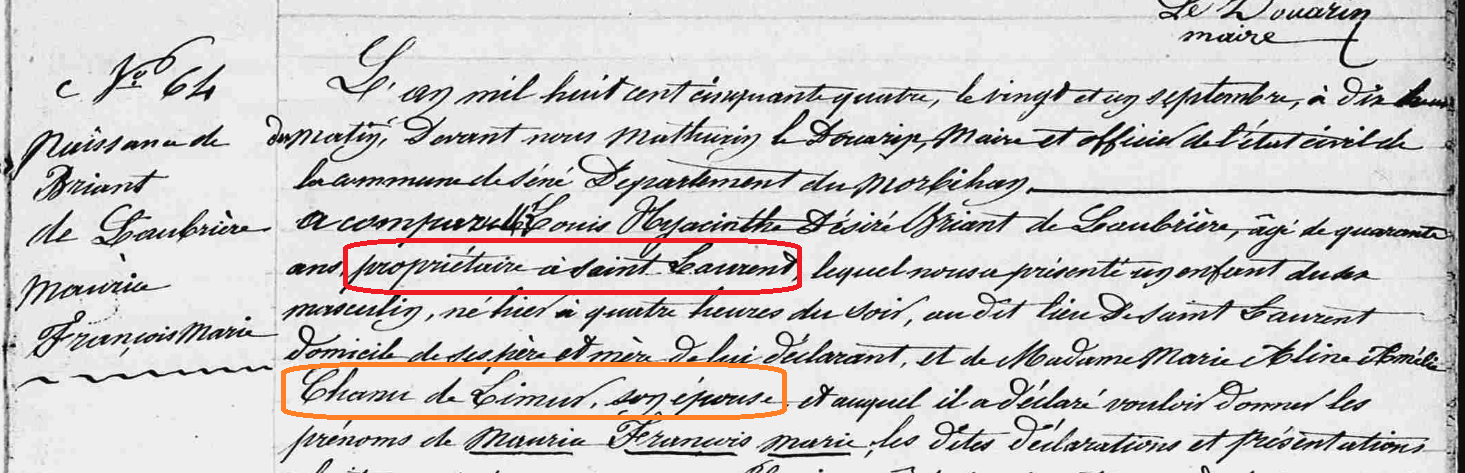 Le Douarin
maire
c N° 64
Naissance de
Briant
de Laubrière
Maurice
François Marie
L'an mil huit cent cinquante quatre, le vingt et un septembre, à dix heures
du matin, Devant nous Mathurin le Douarin, Maire et officier de l'état civil de
la commune de Séné Département du Morbihan,
a comparu Louis Hyacinthe Désiré Briant de Laubrière, âgé de quarante
ans, propriétaire à saint Laurent, lequel nous a présenté un enfant du sexe
masculin, né hier à quatre heures du soir, au dit lieu De saint Laurent
domicile de ses père et mère De lui déclarant, et de Madame Marie Aline Amélie
Chanu de Limur, son épouse, et auquel il a déclaré vouloir donner les
prénoms de Maurice François Marie, les dites déclarations et présentations